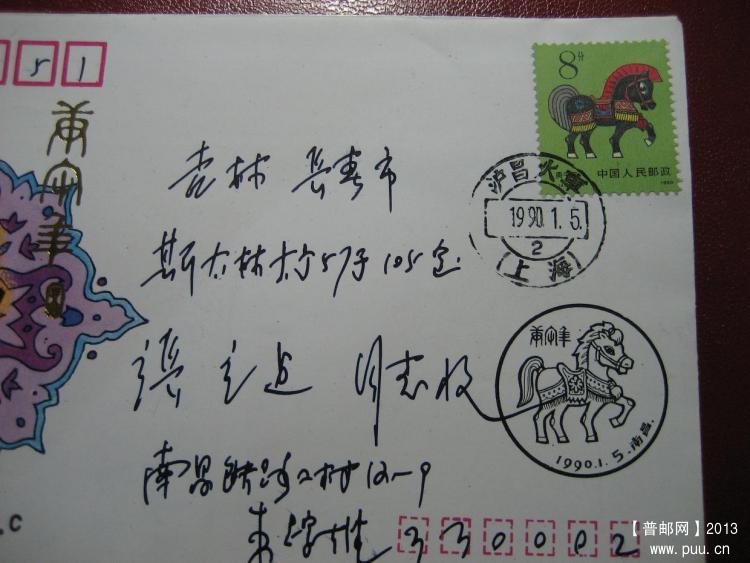 5 1
庚午年
8分
中国人民邮政
1990
沪昌火车
1990.1.5.
2
(上海)
吉林 长春市
斯大林大街57号105室
张 同志收
庚午年
1990.1.5.南昌.
南昌铁路二村12-9
330002
.C
【普邮网】2013
www.puu.cn